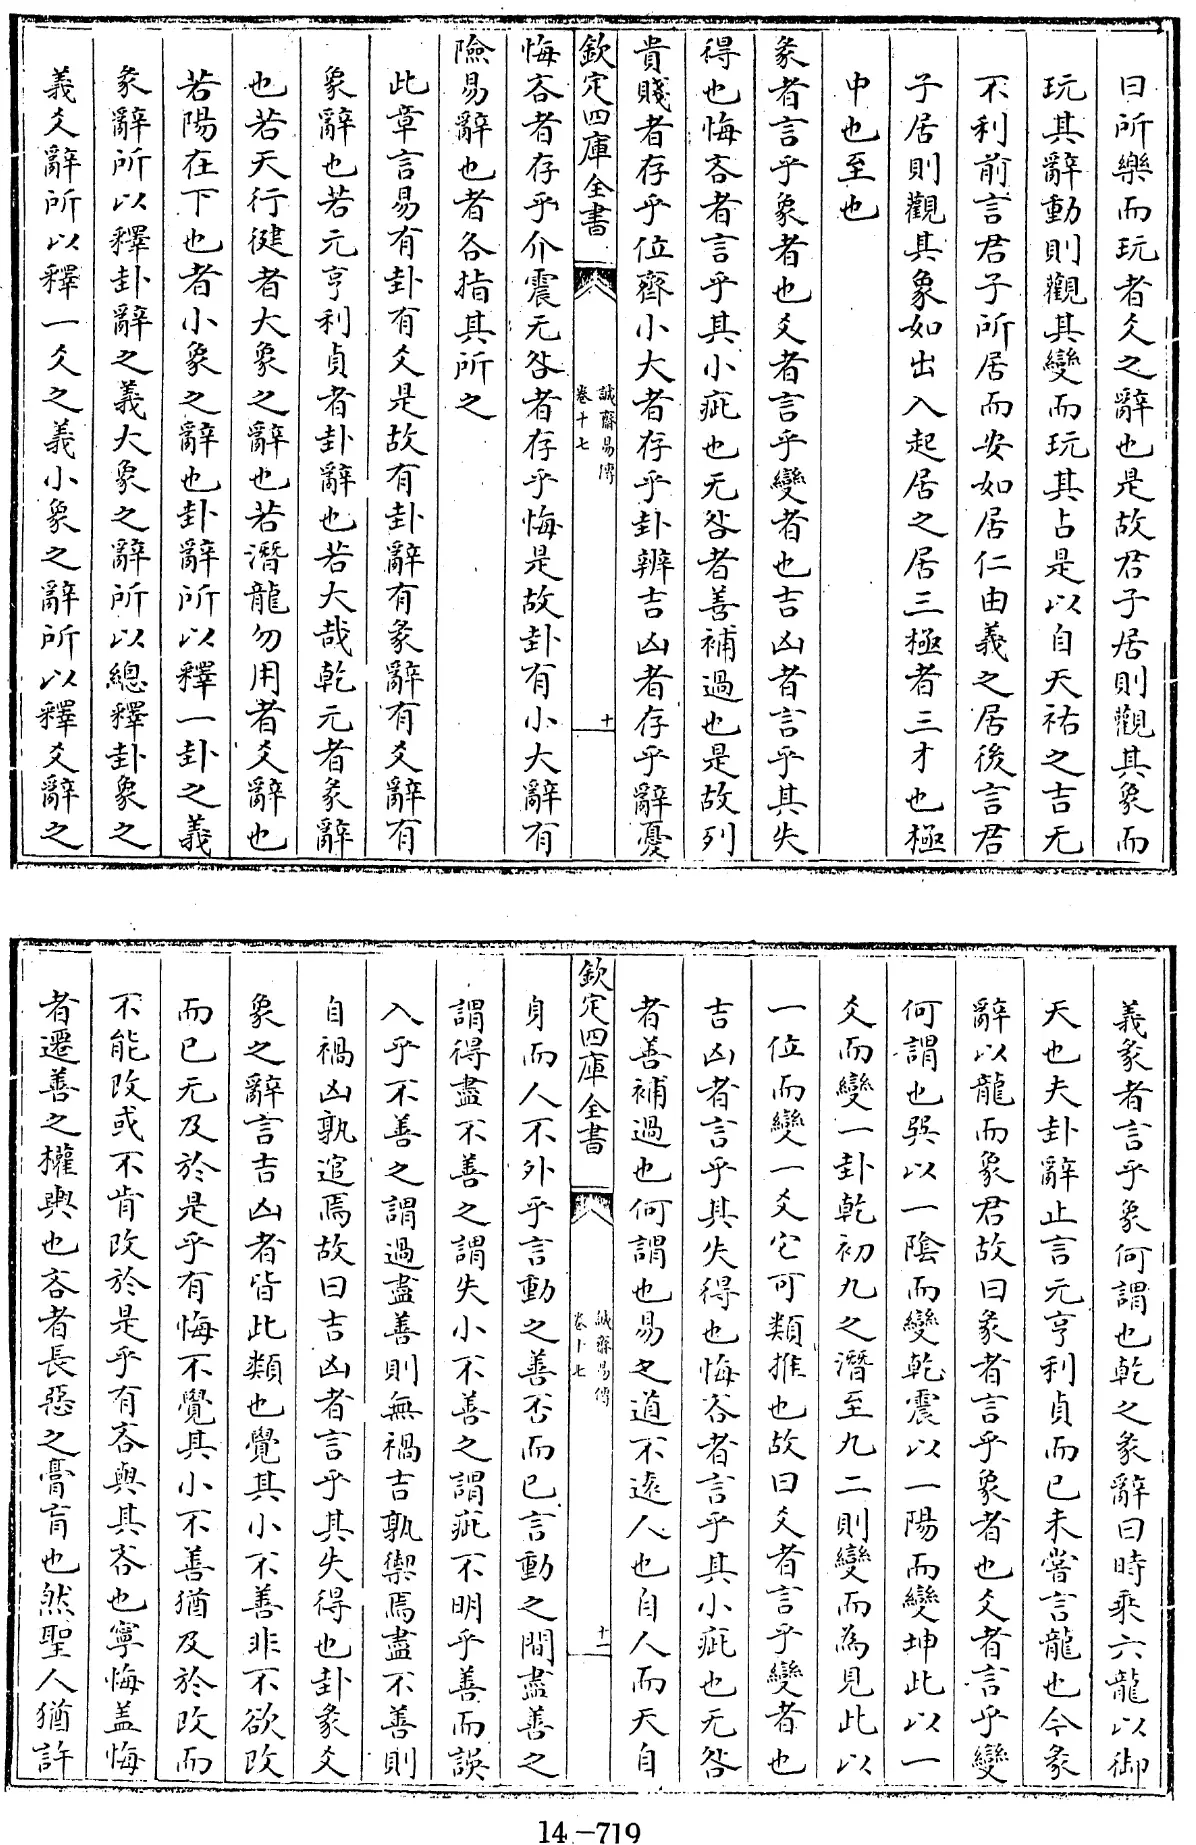 曰所樂而玩者爻之辭也是故君子居則觀其象而
玩其辭動則觀其變而玩其占是以自天祐之吉无
不利前言君子所居而安如居仁由義之居後言君
子居則觀其象如出入起居之居三極者三才也極
中也至也
彖者言乎象者也爻者言乎變者也吉凶者言乎其失
得也悔吝者言乎其小疵也无咎者善補過也是故列
貴賤者存乎位齊小大者存乎卦辨吉凶者存乎辭憂
欽定四庫全書
誠齋易傳
卷十七
十
悔吝者存乎介震无咎者存乎悔是故卦有小大辭有
險易辭也者各指其所之
此章言易有卦有爻是故有卦辭有彖辭有爻辭有
象辭也若元亨利貞者卦辭也若大哉乾元者彖辭
也若天行健者大象之辭也若潛龍勿用者爻辭也
若陽在下也者小象之辭也卦辭所以釋一卦之義
彖辭所以釋卦辭之義大象之辭所以總釋卦象之
義爻辭所以釋一爻之義小象之辭所以釋爻辭之
義彖者言乎象何謂也乾之彖辭曰時乘六龍以御
天也夫卦辭止言元亨利貞而已未嘗言龍也今彖
辭以龍而象君故曰彖者言乎象者也爻者言乎變
何謂也巽以一陰而變乾震以一陽而變坤此以一
爻而變一卦乾初九之潛至九二則變而為見此以
一位而變一爻它可類推也故曰爻者言乎變者也
吉凶者言乎其失得也悔吝者言乎其小疵也无咎
者善補過也何謂也易之道不遠人也自人而天自
欽定四庫全書
誠齋易傳
卷十七
十一
身而人不外乎言動之善否而已言動之間盡善之
謂得盡不善之謂失小不善之謂疵不明乎善而誤
入乎不善之謂過盡善則無禍吉孰禦焉盡不善則
自禍凶孰逭焉故曰吉凶者言乎其失得也卦彖爻
象之辭言吉凶者皆此類也覺其小不善非不欲改
而已无及於是乎有悔不覺其小不善猶及於改而
不能改或不肯改於是乎有吝與其吝也寧悔盖悔
者遷善之權輿也吝者長惡之膏肓也然聖人猶許
14-719